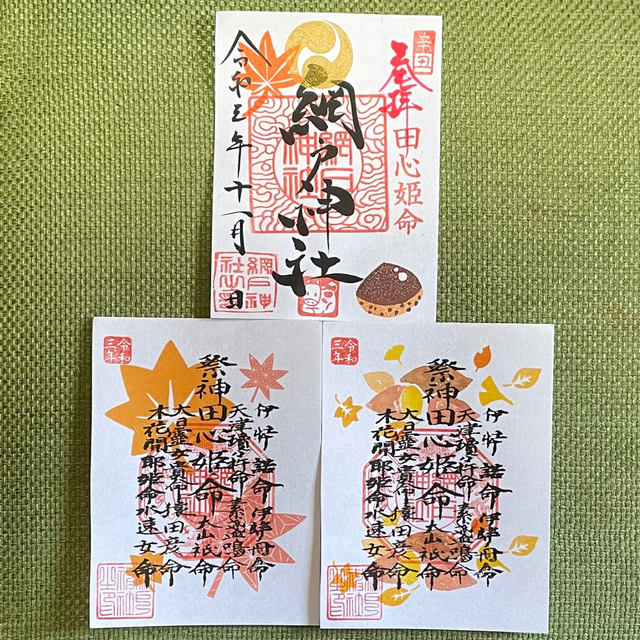 辛丑
登拝
田心姫命
網戸神社
令和三年十一月 日
網戸神社
網戸神
社
令和
三年
伊弉諾命 伊弉冊命
天津瓊々杵命 素盞嗚命
祭神田心姫命 大山祇命
大日孁女貴命 猿田彦命
木花開耶姫命 水速女命
令和
三年
伊弉諾命 伊弉冊命
天津瓊々杵命 素盞嗚命
祭神田心姫命 大山祇命
大日孁女貴命 猿田彦命
木花開耶姫命 水速女命